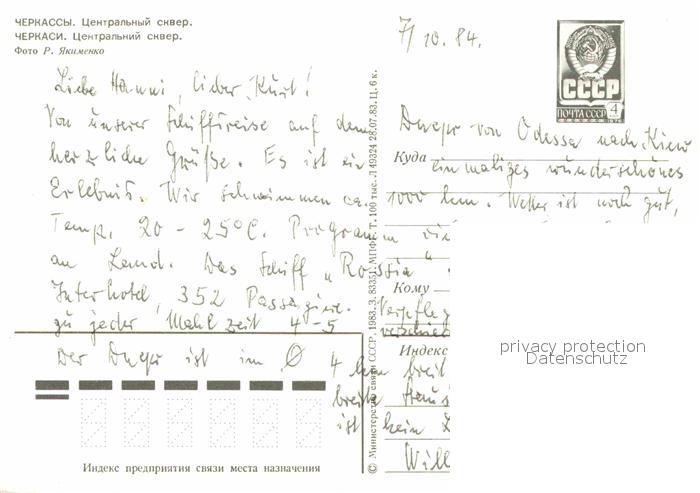 ЧЕРКАССЫ. Центральный сквер.
ЧЕРКАСИ. Центральний сквер.
Фото Р. Якименко
7/10.84.
СССР
ПОЧТА СССР 4
Liebe Hanni, lieber Kurt!
Von unserer Schiffsreise auf dem Dnepr von Odessa nach Kiew
herzliche Grüße. Es ist ein einmaliges wunderschönes
Куда
Erlebnis. Wir schwimmen ca. 1000 km. Wetter ist noch gut,
Temp. 20 - 25°C. Programm
an Land. Das Schiff "Rossia"
Кому
Interhotel, 352 Passagiere. Verpfleg
zu jeder Mahlzeit 4-5 verschied
Индекс
Der Dnepr ist im Ø 4 km breit
breite
ist kein
Will
privacy protection
Datenschutz
Индекс предприятия связи места назначения
© Министерство связи СССР, 1983. З. 83351. МПФГ. Т. 100 тыс. Л 49324 28.07.83. Ц. 6 к.